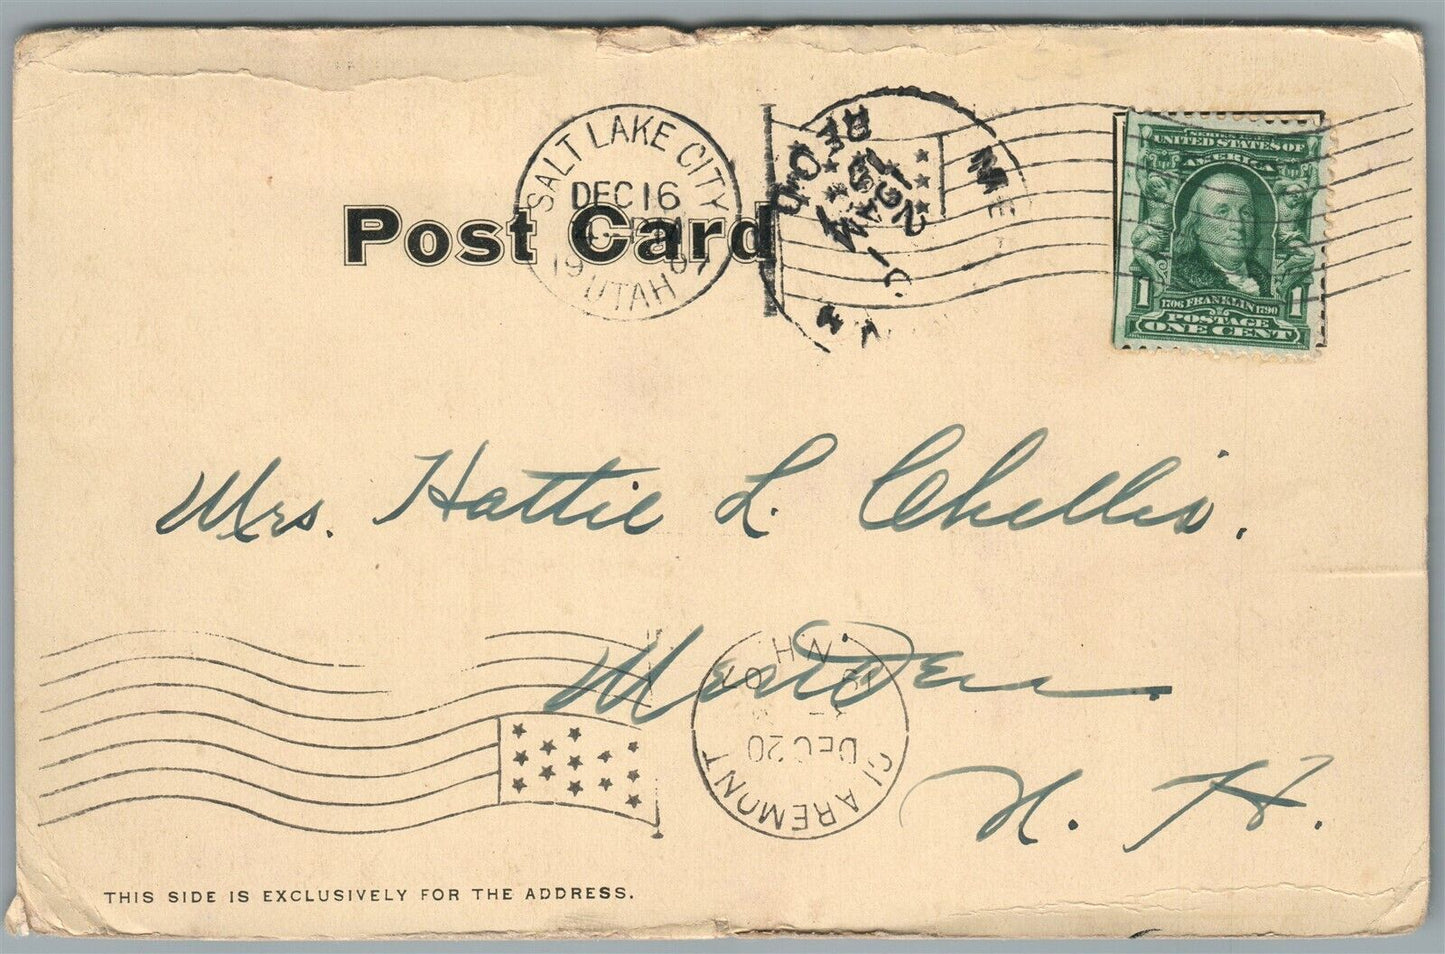 SALT LAKE CITY
DEC 16
1907
UTAH
REC'D
Post Card
SERIES 1902
UNITED STATES OF
AMERICA
1 1
1706 FRANKLIN 1790
POSTAGE
ONE CENT
Mrs. Hattie L. Chellis.
Meriden
N. H.
CLAREMONT
DEC 20
07
N H
THIS SIDE IS EXCLUSIVELY FOR THE ADDRESS.